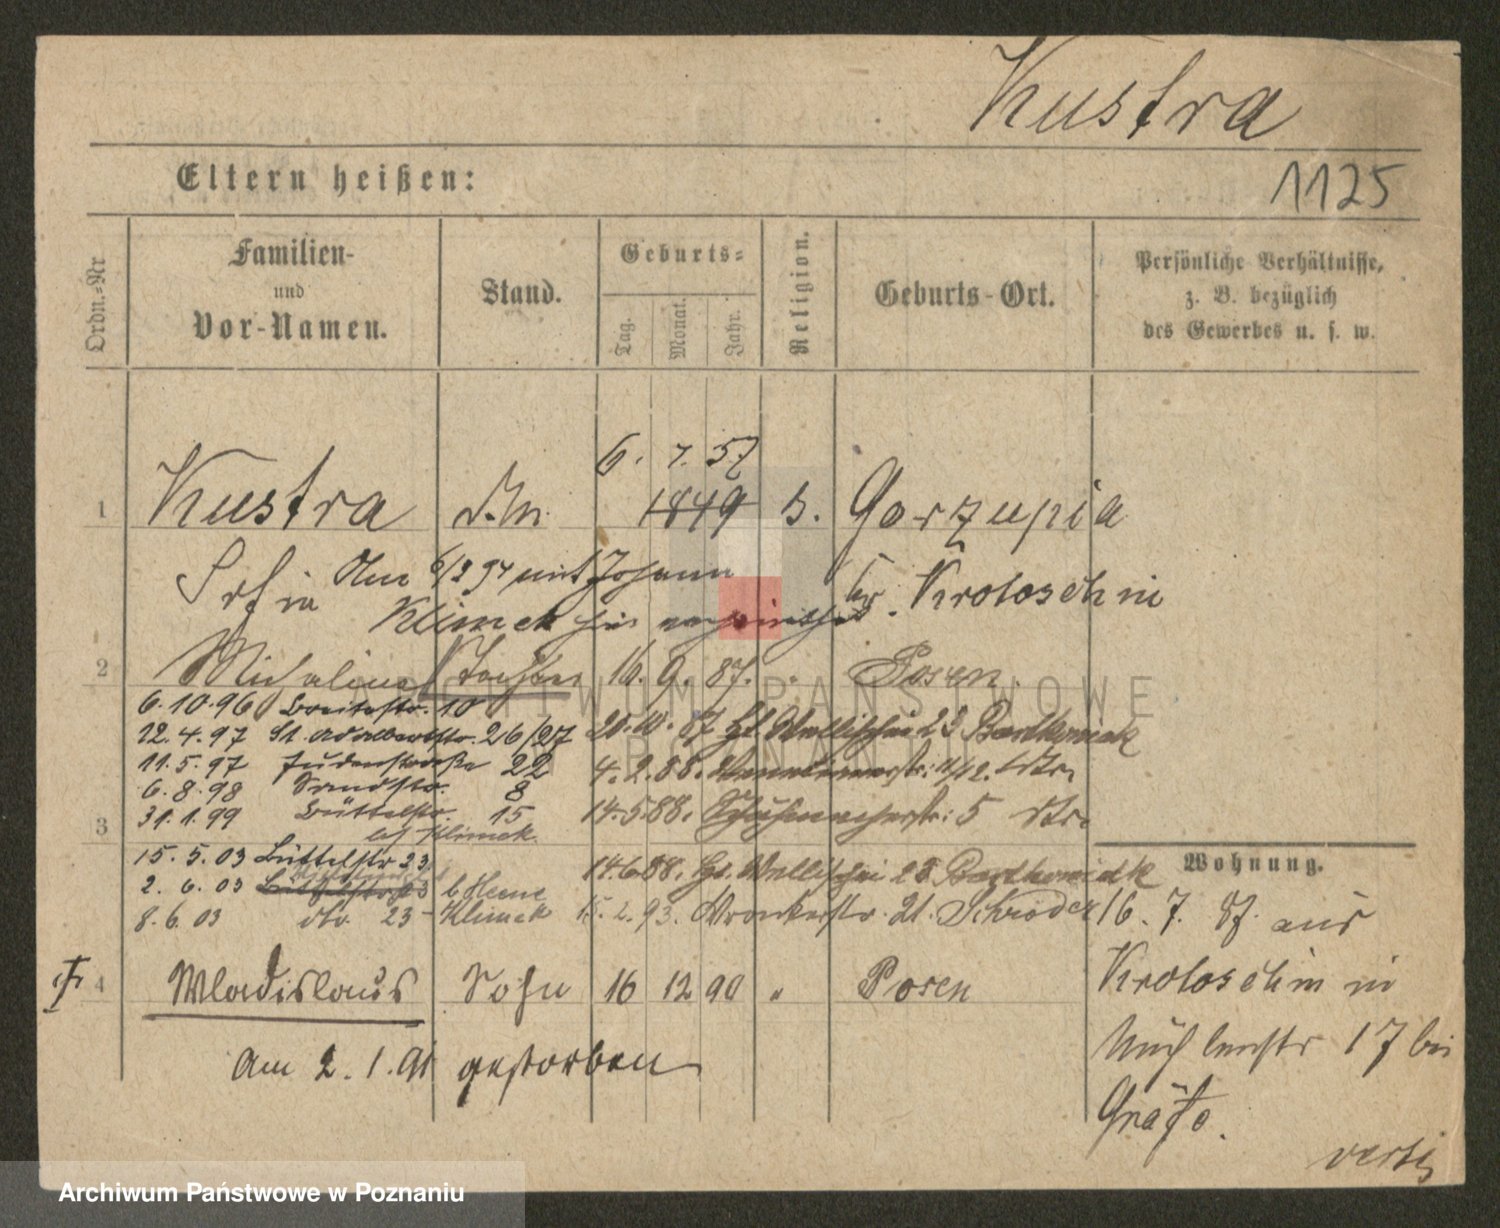 Kustra
1125
Eltern heißen:
Ordn.-Nr
Familien-
und
Vor-Namen.
Stand.
Geburts-
Tag.
Monat.
Jahr.
Religion.
Geburts-Ort.
Persönliche Verhältnisse,
z. B. bezüglich
des Gewerbes u. s. w.
6. 7. 57
1 Kustra 1849 Gorzupia
Am 6/2 94 mit Johann
Klimek hier verheirathet.
Kr. Krotoschin
2 Michalina Tochter 16. 9. 87. " Posen.
6.10.96 Breitestr. 10
12.4.97 St. Adalbertstr. 26/27
20.10.87 Wallischei 23 Bartkowiak
11.5.97 Judenstraße 22
4.2.88. 11/12.
6.8.98 Sandstr. 8
31.1.99 Büttelstr. 15
bei Klimek
14.5.88. Schuhmacherstr: 5
3
15.5.03 Büttelstr 23
14.6.88. Wallischei 23 Bartkowiak
2.6.03 Büttelstr 23
8.6.03 dto. 23 Klimek
15.2.93. Wronkerstr. 21. Schroder
Wohnung.
16. 7. 87. aus
Krotoschin in
Mühlenstr 17 bei
Gräfe.
4 Wladislaus Sohn 16 12 90 " Posen
Am 2. 1. 91 gestorben
verte
ARCHIWUM PAŃSTWOWE
W POZNANIU
Archiwum Państwowe w Poznaniu